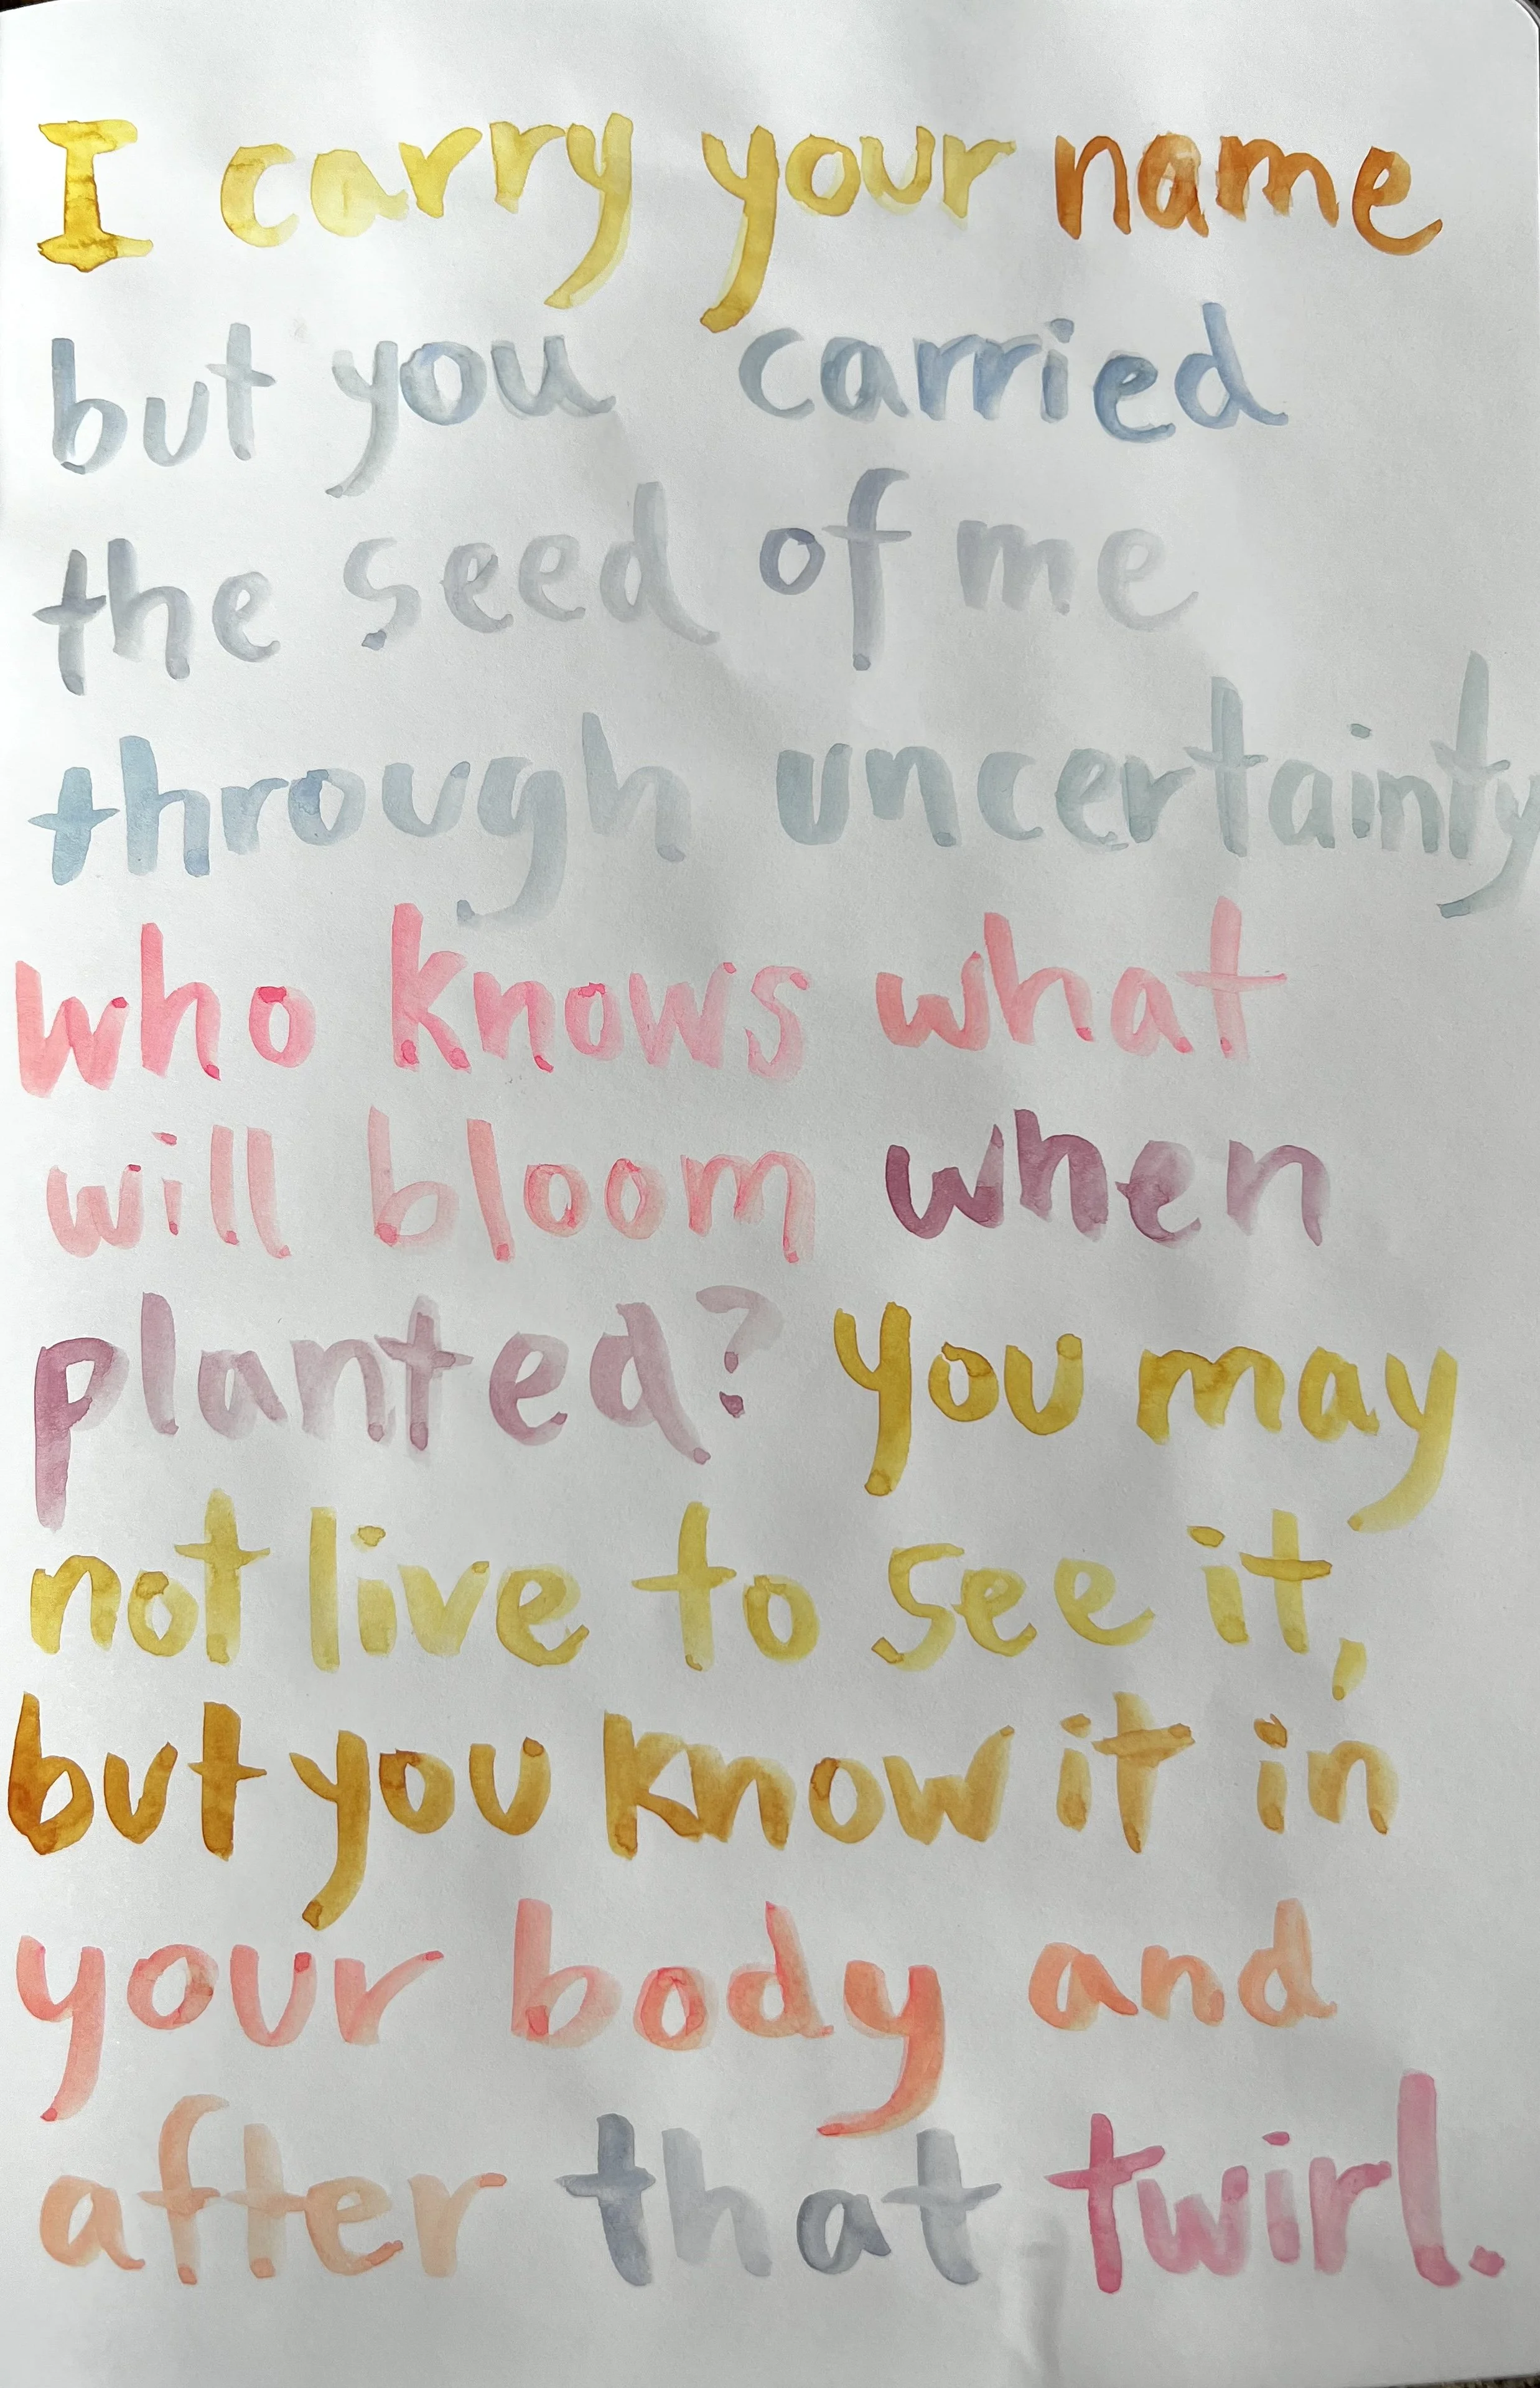 I carry your name
but you carried
the seed of me
through uncertainty
who knows what
will bloom when
planted? you may
not live to see it,
but you know it in
your body and
after that twirl.